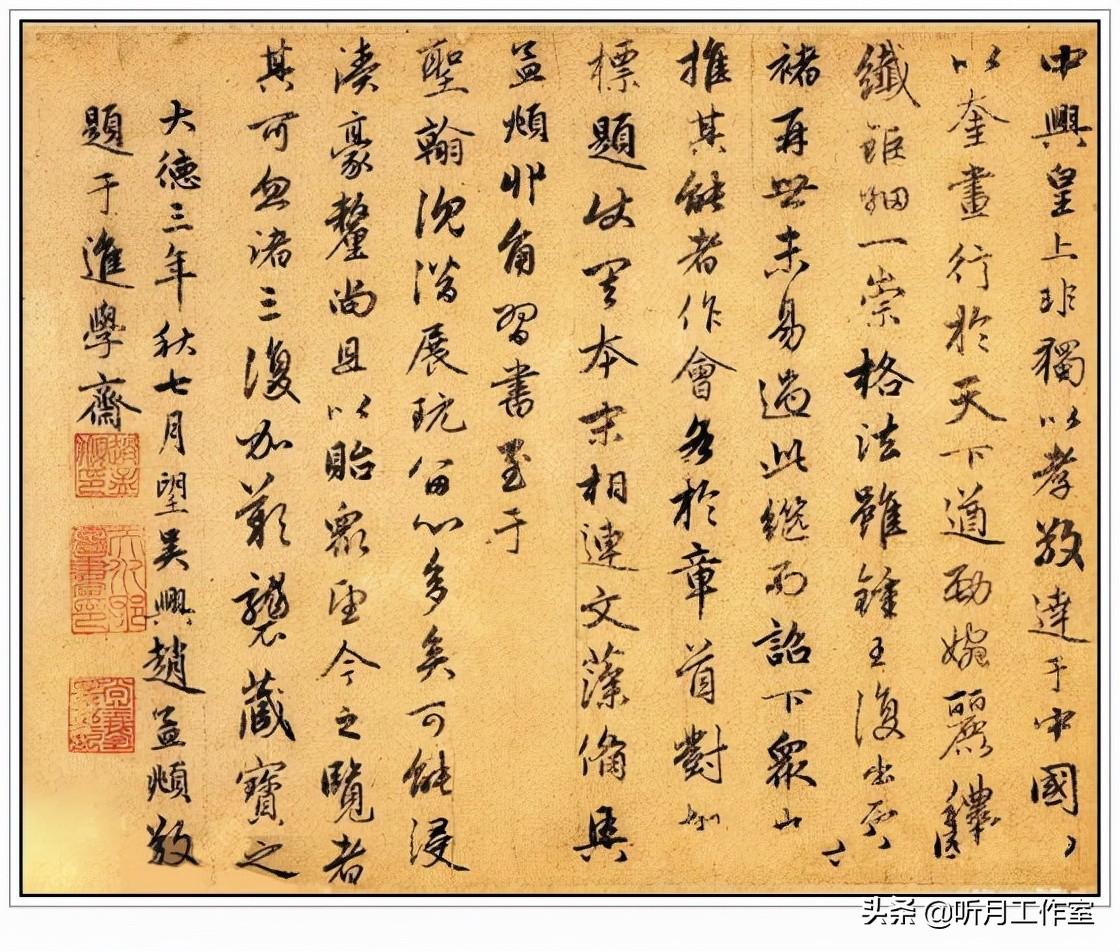 中興皇上非獨以孝敬達于中國
以奎畫行於天下遒勁婉麗穠
纖鉅細一崇格法雖鍾王復出
褚再世未易過此繼而詔下眾山
推其能者作會各於章首對
標題仗 本末相連文藻備具
孟頫丱角習書至于
聖翰沉潛展玩留心多矣可能浸
濡毫釐尚且以貽眾聖今之覽者
其可忽諸三復加歎襲藏寶之
大德三年秋七月望吳興趙孟頫敬
題于進學齋
头条 @听月工作室